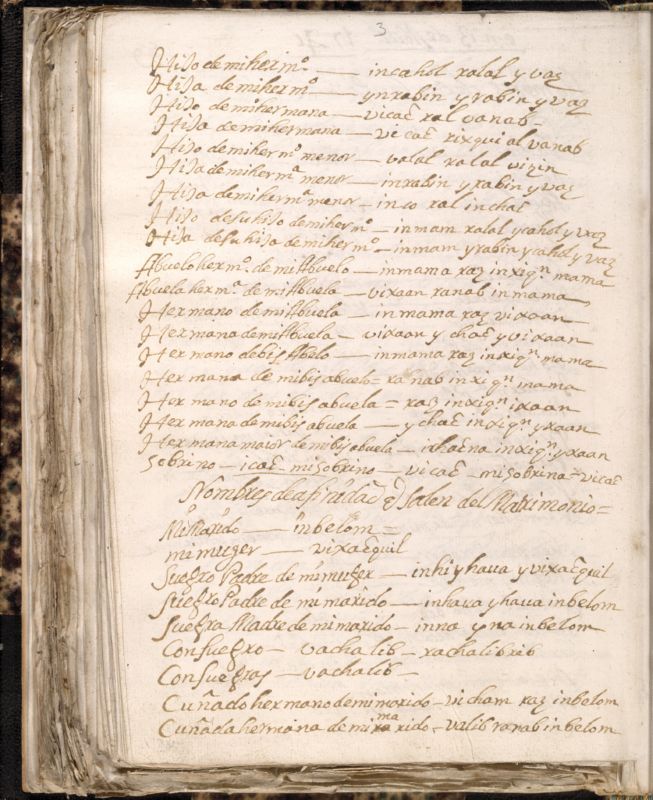 3
Hijo de mi herm.º — in cahol ralal y vaz
Hija de mi herm.º — yn rabin y rabin y vaz
Hijo de mi hermana — vicac ral vanab —
Hija de mi hermana — vi cac rixqui al vanab
Hijo de mi herm.º menor — valal ralal vizin
Hija de mi herm.ª menor — inrabin y rabin y vaz
Hijo de mi herm.ª menor — in co ral in chac
Hijo de su hijo de mi herm.º — in mam ralal y cahol y vaz
Hija de su hijo de mi herm.º — in mam y rabin y cahol y vaz
Abuelo herm.º de mi Abuelo — in mama raz in xiq.n mama
Abuela herm.ª de mi Abuela — vixaan ranab in mama
Hermano de mi Abuela — in mama raz vixaan
Hermana de mi Abuela — vixaan y chac y vixaan
Hermano de bis Abelo — in mama raz in xiq.n mama
Hermana de mi bis abuelo = ranab in xiq.n mama
Hermano de mi bis abuela = raz in xiq.n ixaan
Hermana de mi bis abuela — y chac in xiq.n yxaan
Hermana maior de mi bis abuela — ichacna in xiq.n yxaan
Sobrino — icac — mi sobrino — vicac — mi sobrina = vicac
Nombres de afinidad q̃ salen del Matrimonio =
Mi Marido — in belom =
mi muger — vixacquil
Suegro Padre de mi muger — in hi y haua y vixacquil
Suegro Padre de mi marido — in haua y haua in belom
Suegra Madre de mi marido — inna y na in belom
Consuegro — vachalib — rachalibrib
Consuegras — vachalib —
Cuñado hermano de mi marido — vi cham raz in belom
Cuñada hermana de mi marido = valib ranab in belom